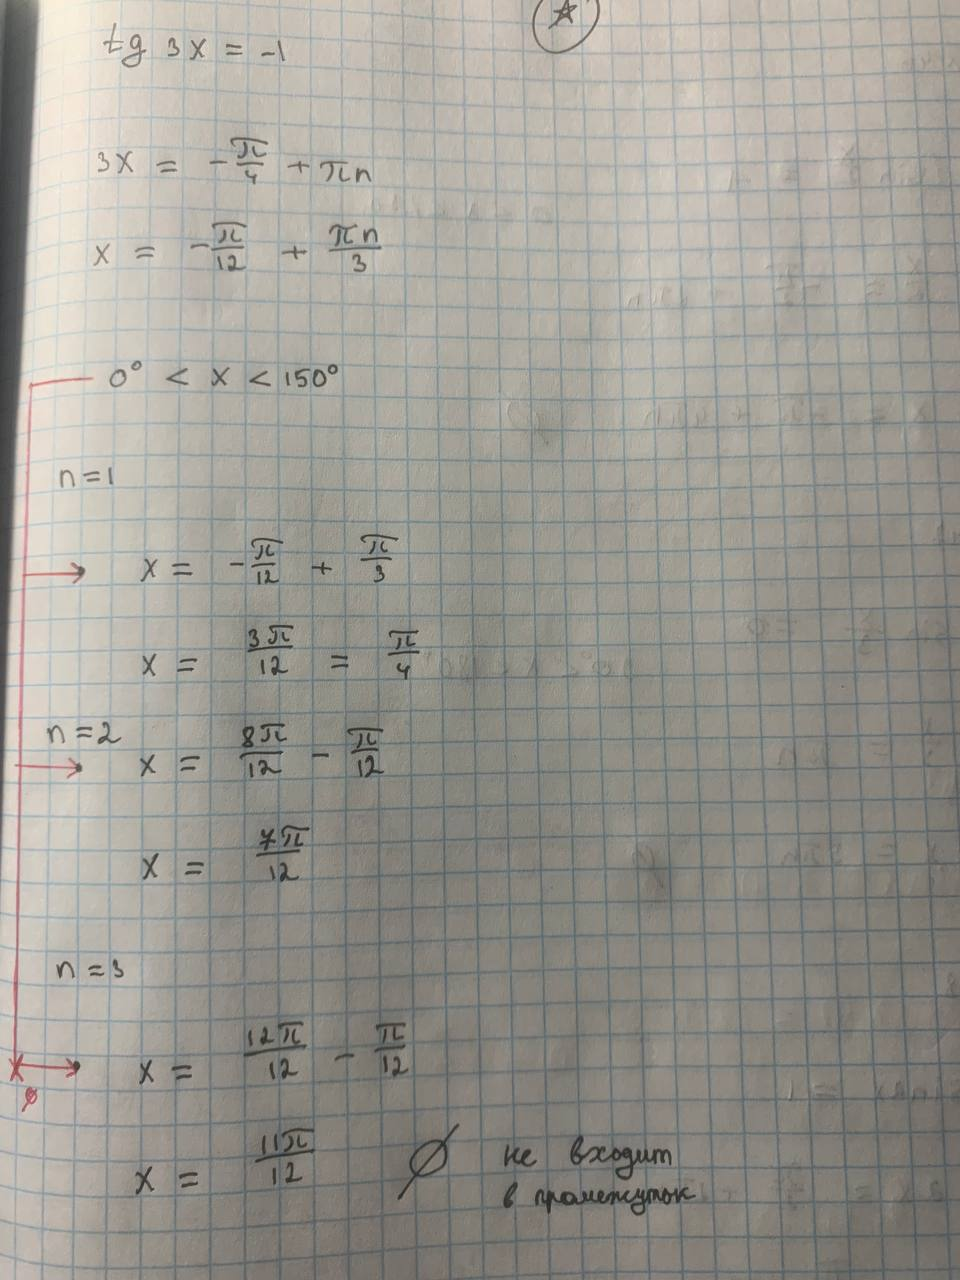 tg 3x = -1
3x = -π/4 + πn
x = -π/12 + πn/3
0° < x < 150°
n=1
x = -π/12 + π/3
x = 3π/12 = π/4
n=2
x = 8π/12 - π/12
x = 7π/12
n=3
x = 12π/12 - π/12
x = 11π/12 ∅ не входит
в промежуток